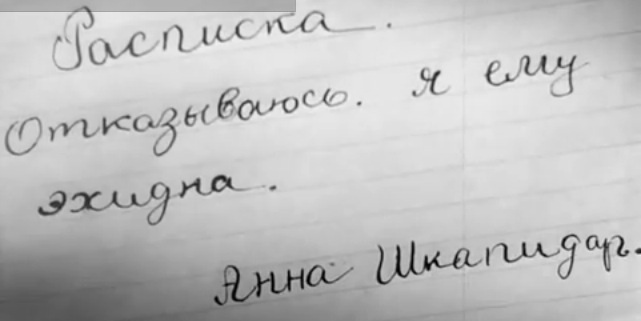 Расписка.
Отказываюсь. я ему
эхидна.
Янна Шкапидар.